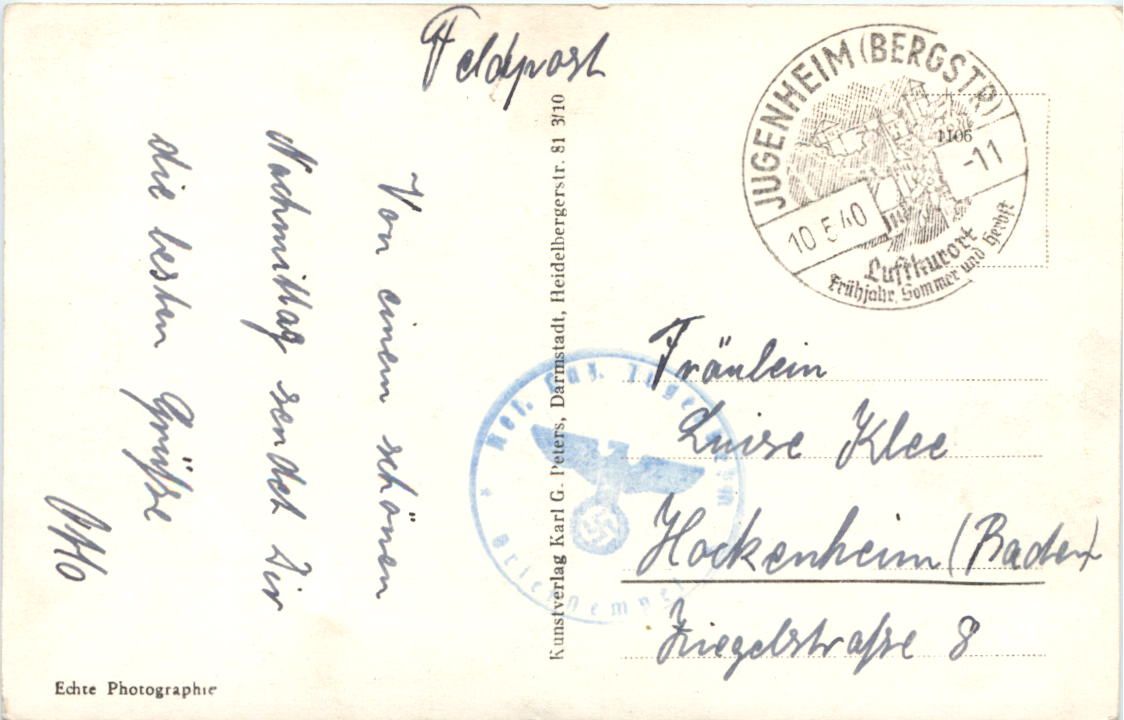 Feldpost
Von einem schönen
Nachmittag sendet Dir
die besten Grüße
Otto
Kunstverlag Karl G. Peters, Darmstadt, Heidelbergerstr. 81 3/10
JUGENHEIM (BERGSTR)
1106
-11
10.5.40
Luftkurort
Frühjahr, Sommer und Herbst
Res. Laz.
Briefstempel
Fräulein
Luise Klee
Hockenheim (Baden)
Ziegelstraße 8
Echte Photographie